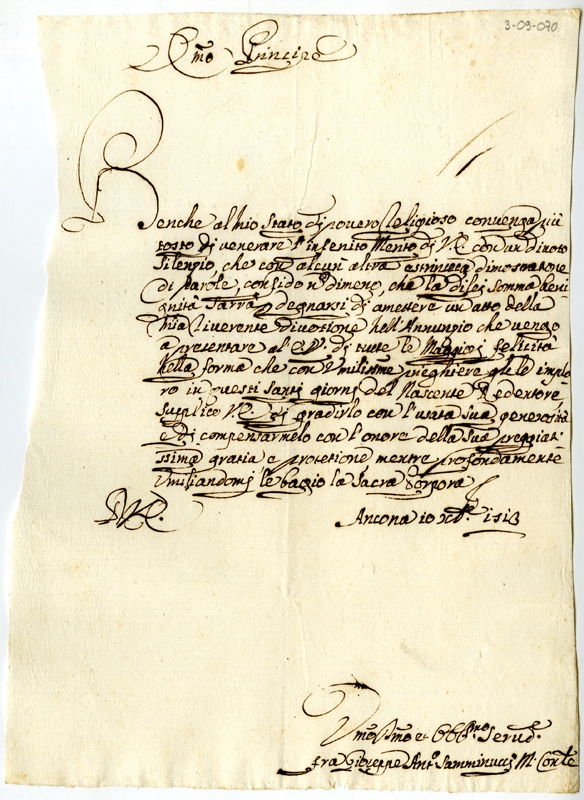 3-09-070
Em̃o Principe
Benche al mio Stato di povero Religioso convenga più
tosto di venerare l'infenito Merito di V.E. con un divoto
Silenzio, che con alcun'altra estrinseca dimostratione
di parole, confido nõdimeno, che la di lej somma beni
gnità Sarrà p degnarsi di amettere un atto della
mia riverente divottione nell'Annunzio che vengo
a presentare al E.V. di tutte le Maggiorj felicità
nella forma che con umilissime preghiere gle le implo
ro in questi Santi giornj del Nascente Redentore
Suplico V.E. di gradirlo con l'usata sua generosità
e di compensarmelo con l'onore della sua preggiat
issima gratia e protetione mentre profondamente
umiliandomj le bagio la Sacra Porpora
D.V.E. Ancona 10 Xbre 1713
Umo Dmo et Obblmo Servre
fra Gioseppe Anto Samminuccj M. Conle